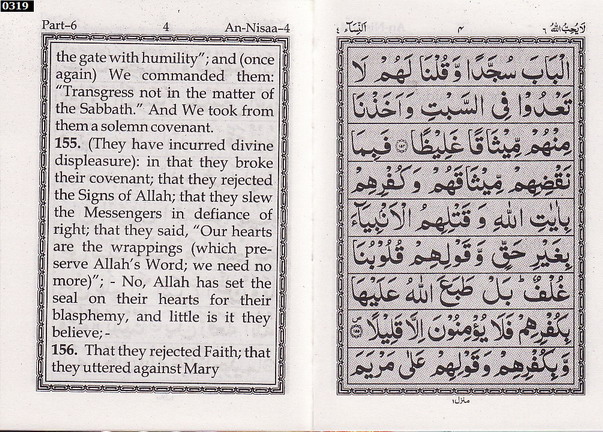 0319
Part-6 4 An-Nisaa-4
the gate with humility”; and (once
again) We commanded them:
“Transgress not in the matter of
the Sabbath.” And We took from
them a solemn covenant.
155. (They have incurred divine
displeasure): in that they broke
their covenant; that they rejected
the Signs of Allah; that they slew
the Messengers in defiance of
right; that they said, “Our hearts
are the wrappings (which pre-
serve Allah’s Word; we need no
more)”; - No, Allah has set the
seal on their hearts for their
blasphemy, and little is it they
believe;-
156. That they rejected Faith; that
they uttered against Mary
لَا يُحِبُّ اللّٰهُ ٦ ٤ اَلنِّسَآء ٤
الْبَابَ سُجَّدًا وَّقُلْنَا لَهُمْ لَا
تَعْدُوْا فِى السَّبْتِ وَاَخَذْنَا
مِنْهُمْ مِّيْثَاقًا غَلِيْظًا ﴿۱۵۴﴾ فَبِمَا
نَقْضِهِمْ مِّيْثَاقَهُمْ وَكُفْرِهِمْ
بِاٰيٰتِ اللّٰهِ وَقَتْلِهِمُ الْاَنْۢبِيَآءَ
بِغَيْرِ حَقٍّ وَّقَوْلِهِمْ قُلُوْبُنَا
غُلْفٌ ؕ بَلْ طَبَعَ اللّٰهُ عَلَيْهَا
بِكُفْرِهِمْ فَلَا يُؤْمِنُوْنَ اِلَّا قَلِيْلًا ﴿۱۵۵﴾
وَّبِكُفْرِهِمْ وَقَوْلِهِمْ عَلٰى مَرْيَمَ
منزل ١